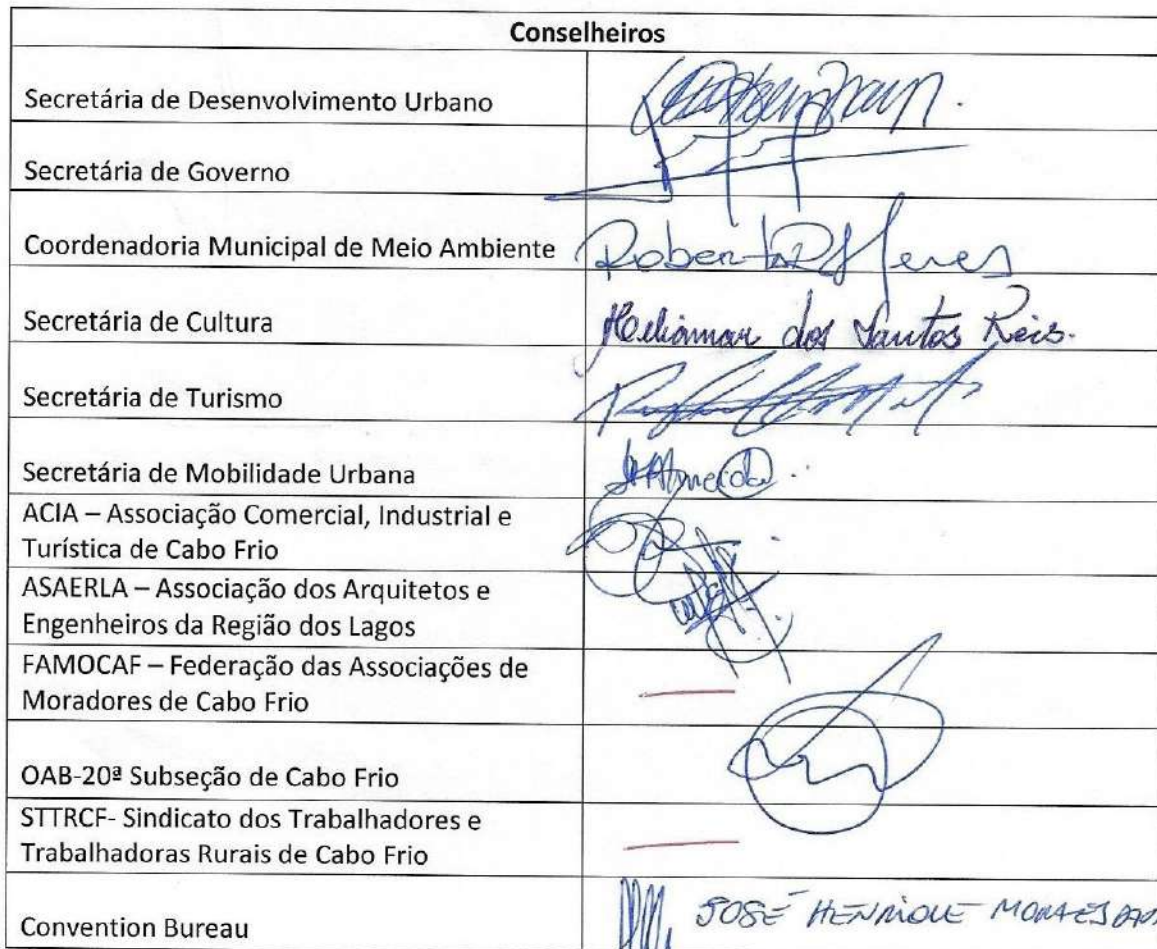 Conselheiros
Secretária de Desenvolvimento Urbano
Secretária de Governo
Coordenadoria Municipal de Meio Ambiente
Secretária de Cultura
Heliomar dos Santos Reis.
Secretária de Turismo
Secretária de Mobilidade Urbana
Almeida
ACIA – Associação Comercial, Industrial e
Turística de Cabo Frio
ASAERLA – Associação dos Arquitetos e
Engenheiros da Região dos Lagos
FAMOCAF – Federação das Associações de
Moradores de Cabo Frio
OAB-20ª Subseção de Cabo Frio
STTRCF- Sindicato dos Trabalhadores e
Trabalhadoras Rurais de Cabo Frio
Convention Bureau
JOSÉ HENRIQUE MORAES